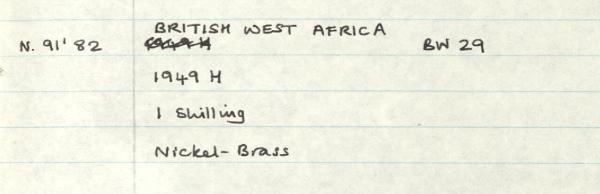 BRITISH WEST AFRICA
N. 91'82 1949 H BW 29
1949 H
1 Shilling
Nickel-Brass